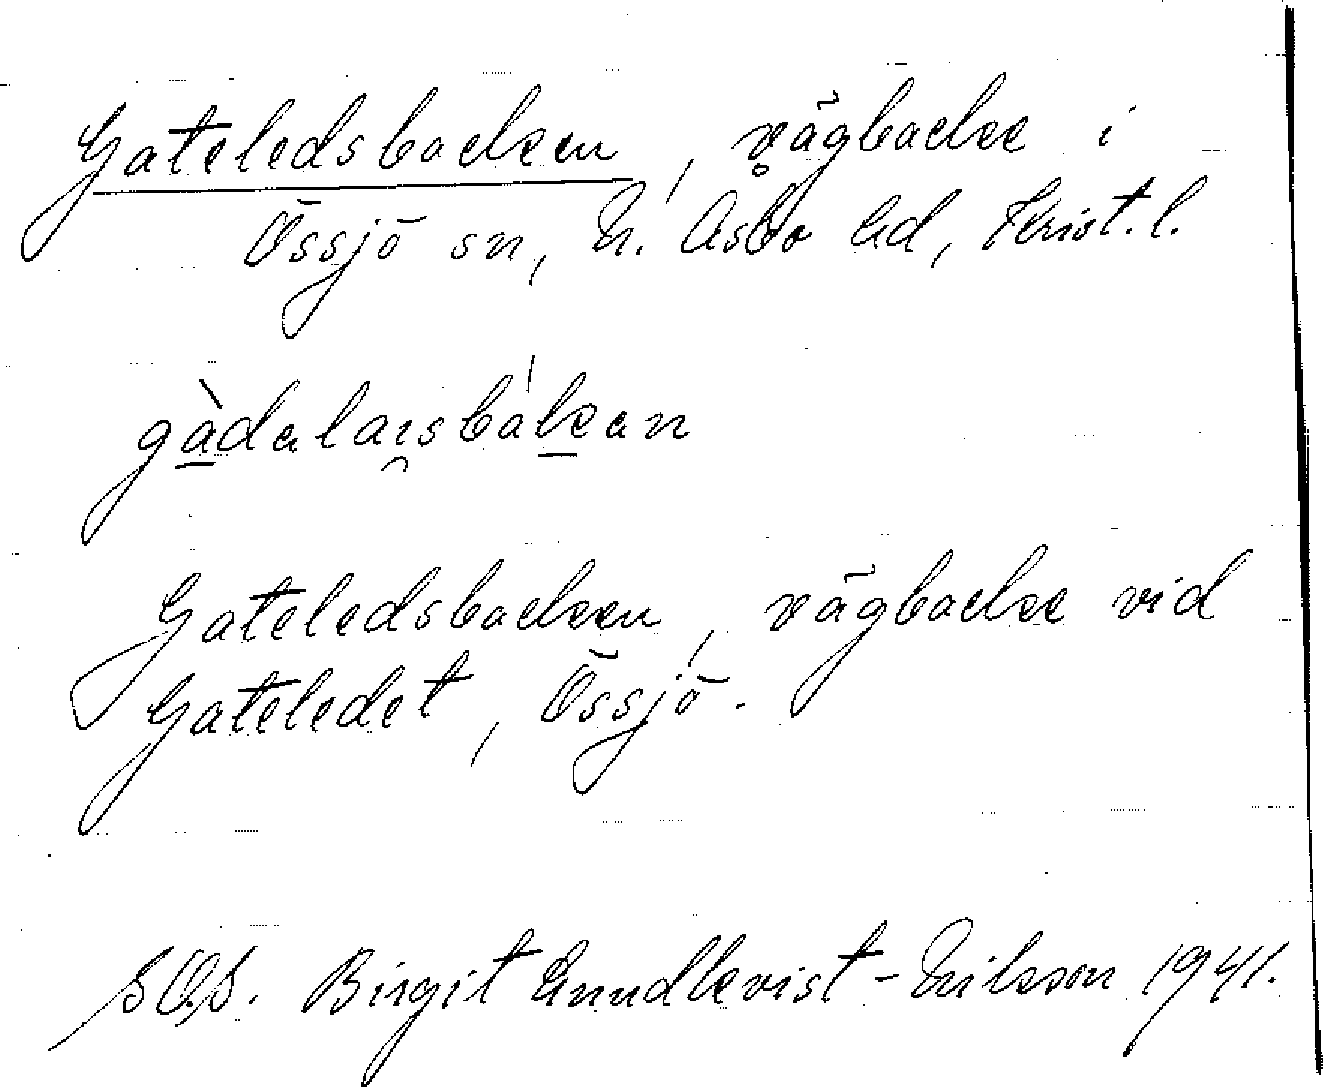 Gateledsbacken, vägbacke i
Össjö sn, N. Åsbo hd, Krist. l.
gàdalaısbákan
Gateledsbacken, vägbacke vid
Gateledet, Össjö.
SOS. Birgit Lundkvist-Nilsson 1941.